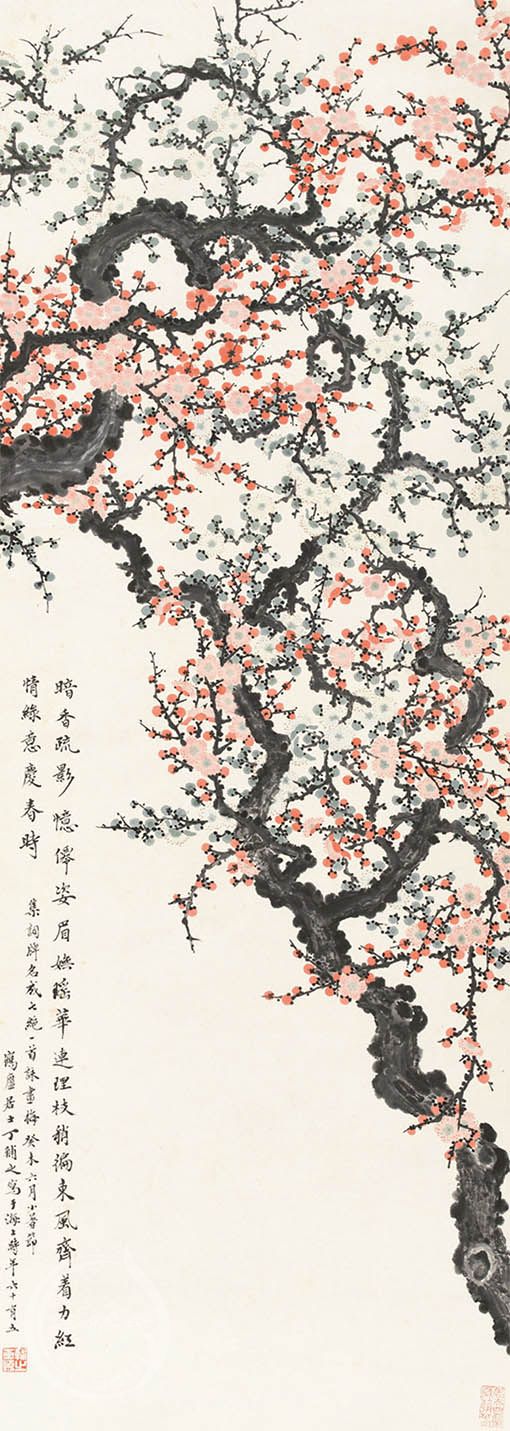 暗香疏影憶僊姿眉嫵瑤華連理枝稍徧東風齊着力紅
情綠意慶春時
集詞牌名成七絕一首詠畫梅癸未六月小暑節
鶴廬居士丁輔之寫于海上時年六十有五